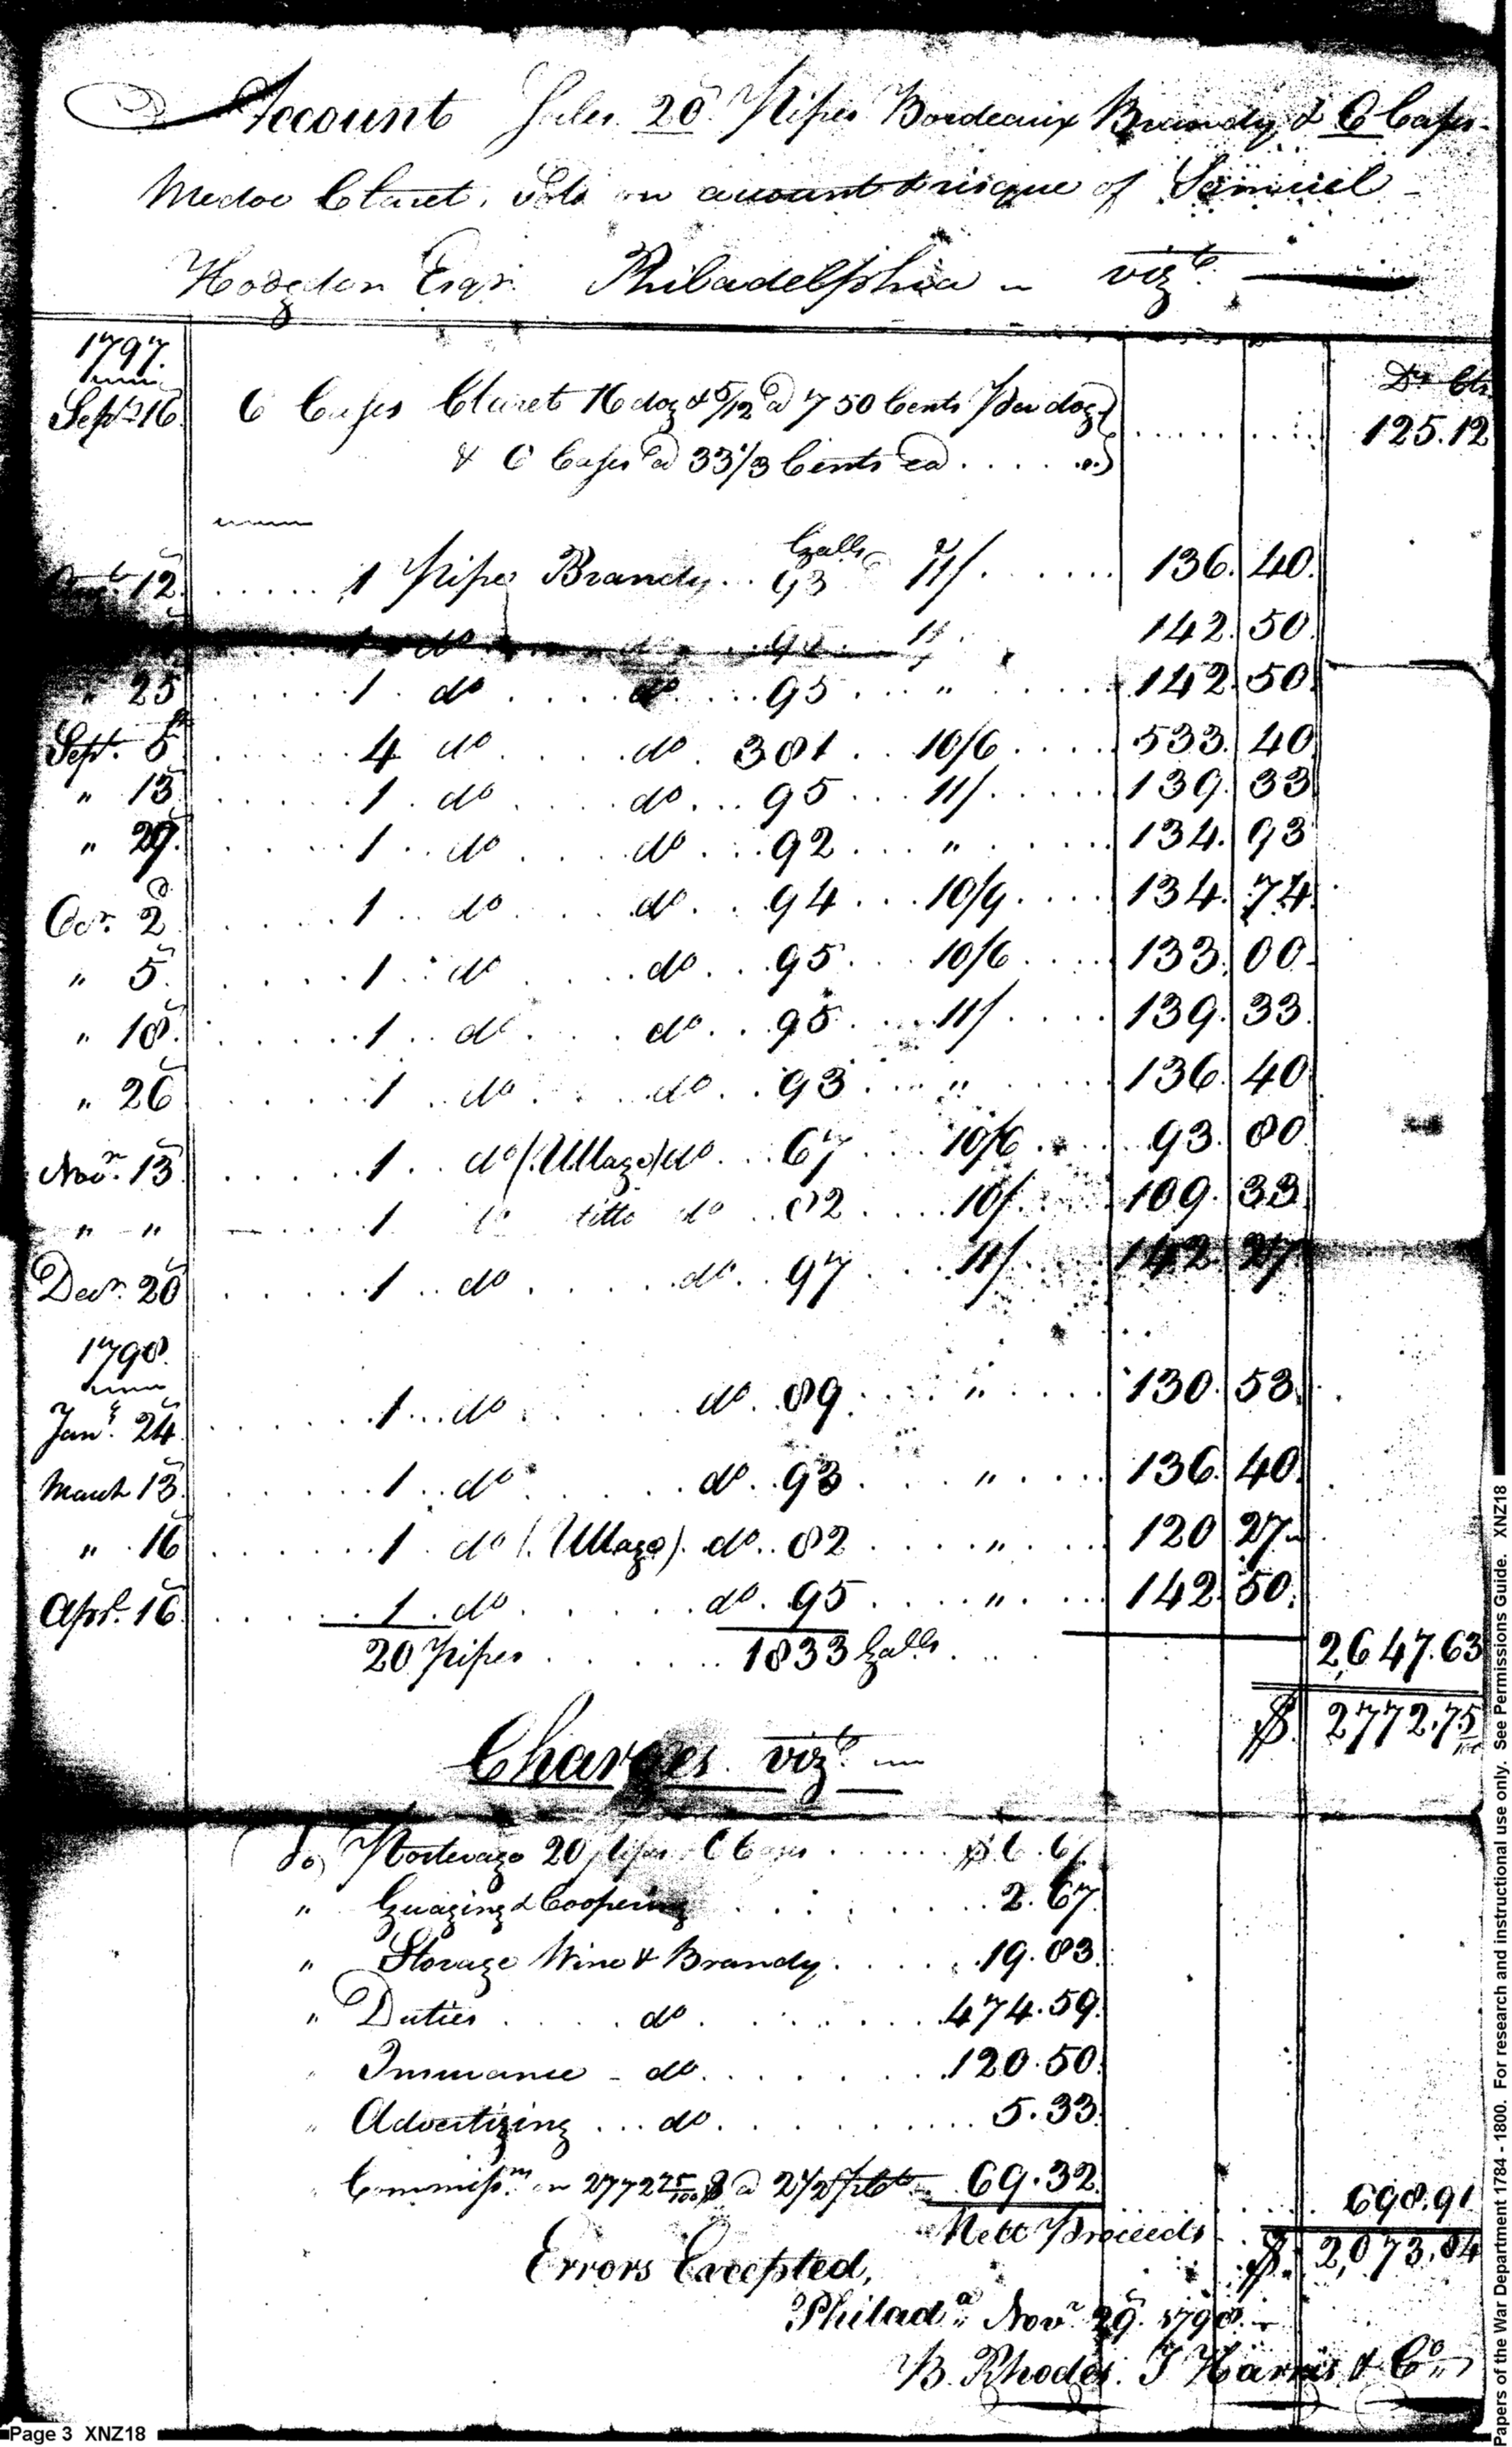 Account Sales 20 Pipes Bordeaux Brandy & 6 Cases
Medoc Claret, Sold on account & risque of Samuel
Hodgdon Esqr. Philadelphia - vizt.
1797. Drs Cts
Septr 16 6 Cases Claret 16 doz & 5/12 @ 7 50 Cents Per doz } 125.12
& 6 Cases @ 33 1/3 Cents ea
12 1 Pipe Brandy 93 Galls @ 11/ 136.40
1 do do 11 142.50
" 25 1 do do 95 " 142.50
Sept. 8 4 do do 381 10/6 533.40
" 13 1 do do 95 11/ 139.33
" 29 1 do do 92 " 134.93
Octr. 2d 1 do do 94 10/9 134.74
" 5 1 do do 95 10/6 133.00
" 18 1 do do 95 11/ 139.33
" 26 1 do do 93 " 136.40
Novr. 13 1 do (Ullage) do 67 10/6 93.80
" " 1 do ditto do 82 10/ 109.33
Decr. 20 1 do do 97 11/ 142.27
1798.
Jany. 24 1 do do 89 " 130.53
March 13 1 do do 93 " 136.40
" 16 1 do (Ullage) do 82 " 120 27
Aprl. 16 1 do do 95 " 142.50
20 Pipes 1833 Galls 2,647.63
$ 2772.75
Charges vizt.
To Porterage 20 pipes 6 Cases $6.67
" Guaging & Coopering 2.67
" Storage Wine & Brandy 19.83
" Duties do 474.59
" Insurance - do 120.50
" Advertizing do 5.33
" Commissn. on 2772 75/100 $ @ 2 1/2 69.32
698.91
Nett Proceeds $ 2,073.84
Errors Excepted,
Philada. Novr 29. 1798.
B. Rhodes. J Harris & Co
Page 3 XNZ18
Papers of the War Department 1784 - 1800. For research and instructional use only. See Permissions Guide. XNZ18